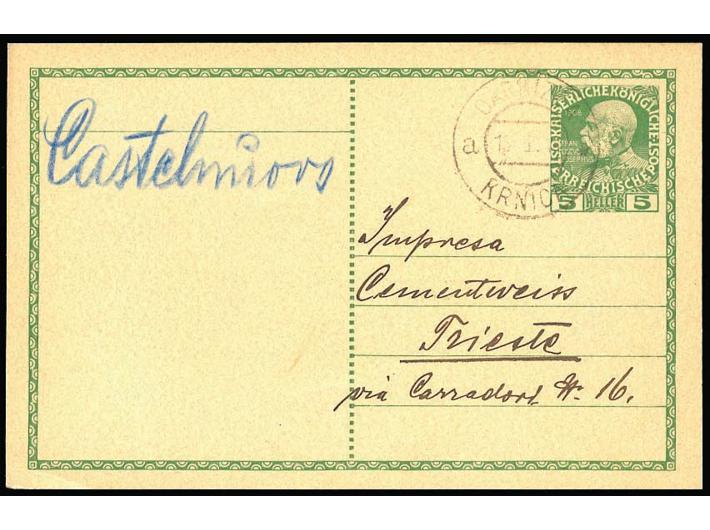 Castelnuovo
a
KRNIC
KAISERLICHE KÖNIGLICHE
ÖSTERREICHISCHE POST
5 HELLER 5
Impresa
Cementweiss
Trieste
via Carradori N. 16.